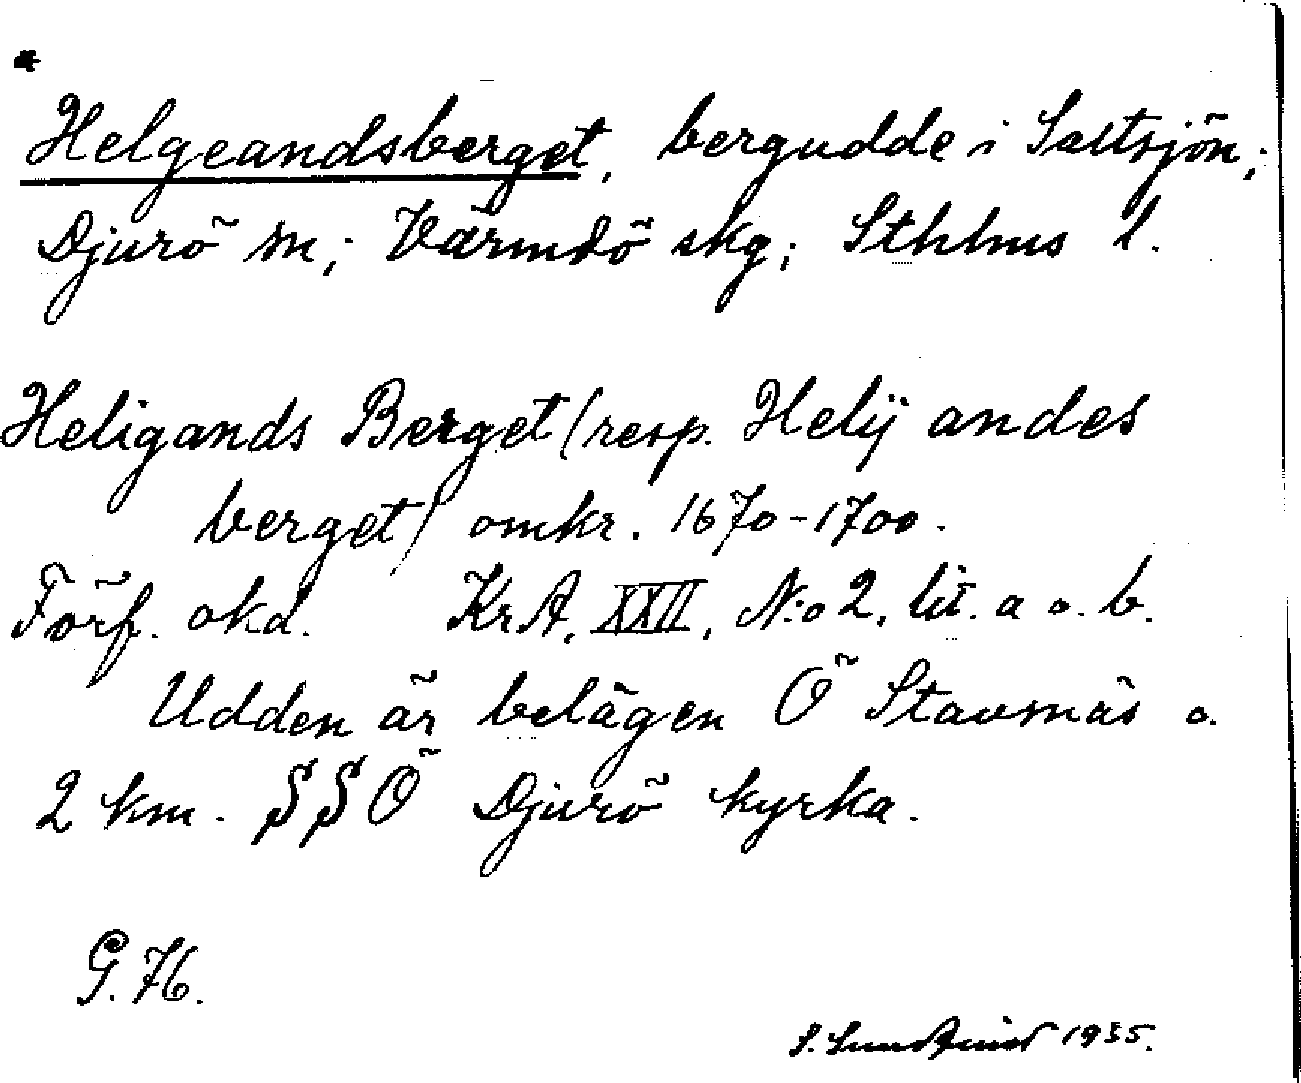 Helgeandsberget, bergudde i Saltsjön;
Djurö sn; Värmdö skg; Sthlms l.
Heligands Berget (resp. Helÿ andes
berget) omkr. 1670-1700.
Förf. okd. KrA, XXII, N:o 2, lit. a o. b.
Udden är belägen Ö Stavsnäs o.
2 km. SSÖ Djurö kyrka.
G. 76.
S. Sundquist 1935.